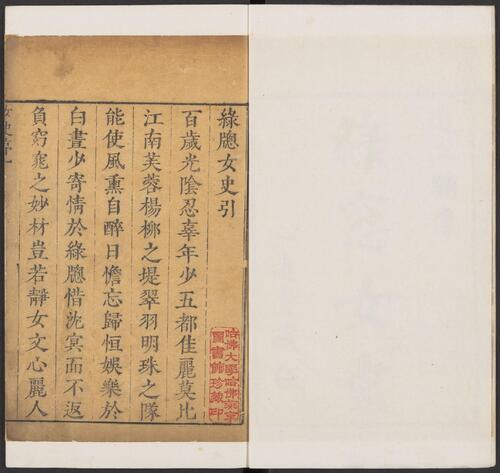 綠牕女史引
百歲光陰忍辜年少五都佳麗莫比
江南芙蓉楊柳之堤翠羽明珠之隊
能使風熏自醉日憺忘歸恒娛樂於
白晝少寄情於綠牕惜沈冥而不返
負窈窕之妙材豈若靜女文心麗人
女史序一
哈佛大學哈佛燕京
圖書館珍藏印